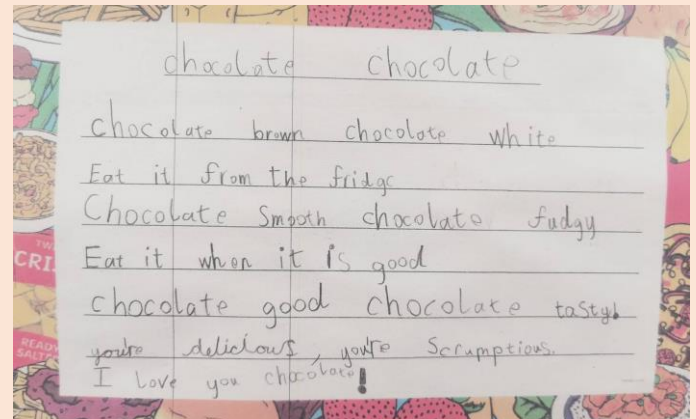 chocolate chocolate
chocolate brown chocolate white
Eat it from the fridge
Chocolate Smooth chocolate fudgy
Eat it when it is good
chocolate good chocolate tasty!
you're delicious, you're Scrumptious.
I Love you chocolate!
CRI
READY
SALTE